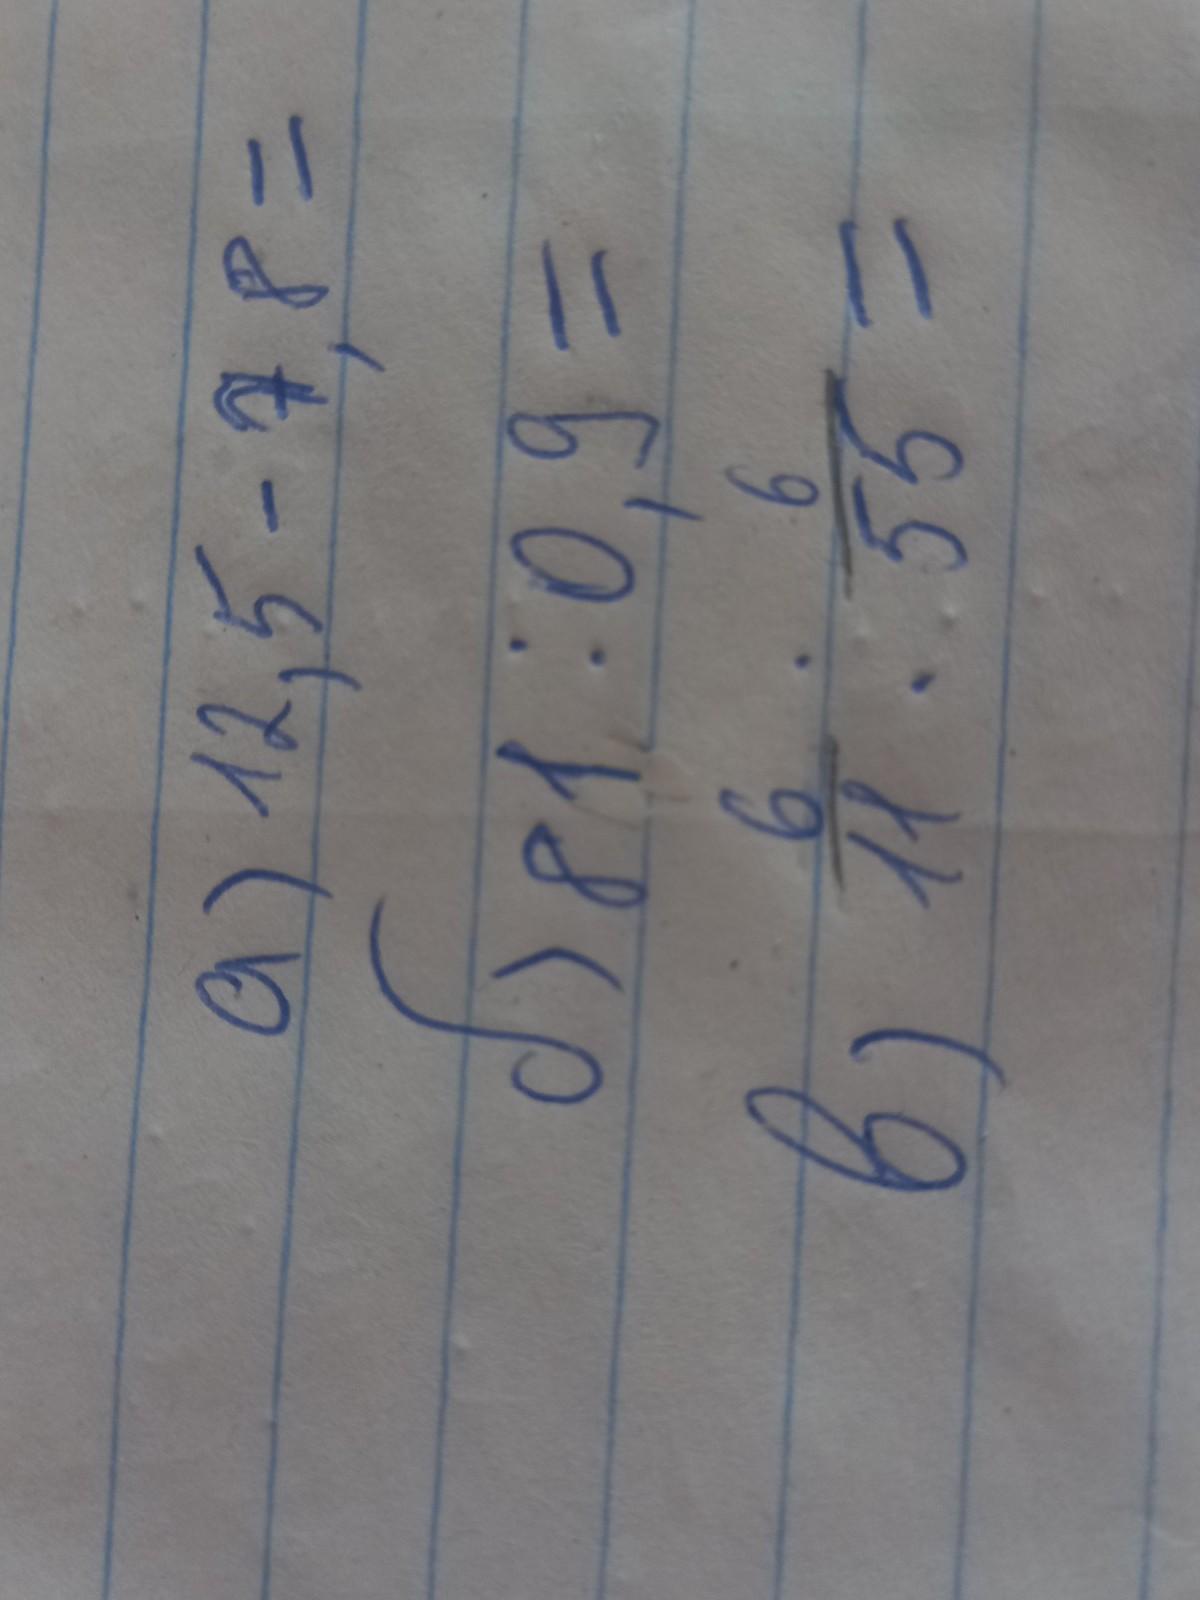 а) 12,5 - 7,8 =
б) 81 : 0,9 =
в) 6/11 : 6/55 =